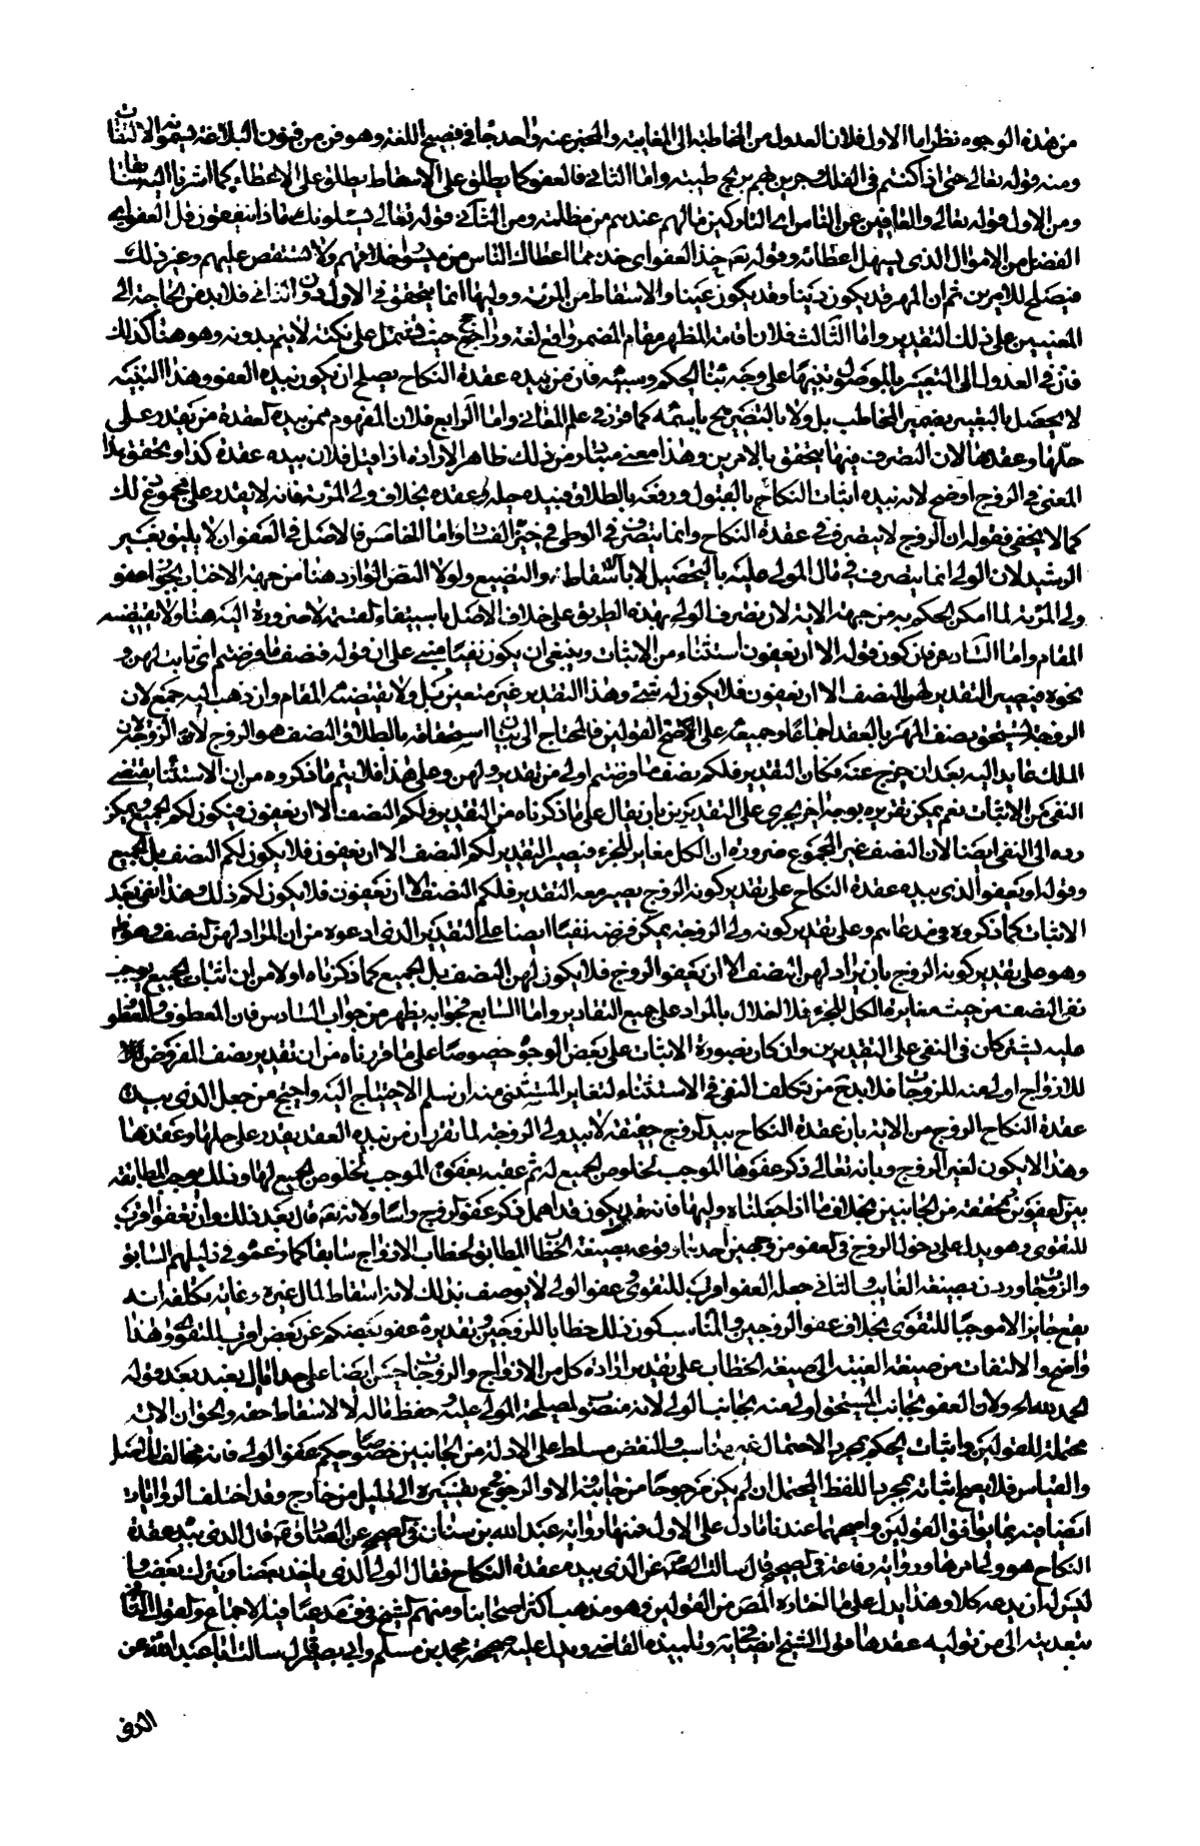 من هذه الوجوه نظر اما الاول فلان العدول من المخاطبة الى المغايبة والمخبر عنه واحد جائز في فصيح اللغة وهو فن من فنون البلاغة يسمونه الالتفات
ومنه قوله تعالى حتى اذا كنتم في الفلك وجرين بهم بريح طيبة واما الثاني فالعفو كما يطلق على الاسقاط يطلق على الاعطاء كما اشرنا اليه سابقا
ومن الاول قوله تعالى والعافين عن الناس اى التاركين مالهم عندهم من مظلمة ومن الثاني قوله تعالى يسئلونك ماذا ينفقون قل العفو اى
الفضل من الاموال الذى يسهل اعطائه وقوله تعالى خذ العفو اى خذ مما اعطاك الناس من ميسور اخلاقهم ولا تستقص عليهم وغير ذلك
فيصلح للامرين ثم ان المهر قد يكون دينا وقد يكون عينا والاسقاط من المرئة ووليها انما يتحقق في الاول دون الثاني فلا بد من الحاجة الى
المعنيين على ذلك التقدير واما الثالث فلان اقامة المظهر مقام المضمر واقع لغة وراجح حيث يشتمل على نكتة لا يتم بدونه وهو هنا كذلك
فان في العدول الى التعبير بالموصول تنبيها على وجه ثبات الحكم وسببه فان من بيده عقدة النكاح يصلح ان يكون بيده العفو وهذا التنبيه
لا يحصل بالتعبير بضمير المخاطب بل ولا بالتصريح باسمه كما قرر في علم المعاني واما الرابع فلان المفهوم ممن بيده العقدة من يقدر على
حلها وعقدها لان التصرف فيها يتحقق بالامرين وهذا معنى متبادر من ذلك ظاهر الارادة اذا قيل فلان بيده عقدة كذا وتحقق هذا
المعنى في الزوج اوضح لانه بيده اثبات النكاح بالقبول ورفعه بالطلاق فبيده حله وعقده بخلاف ولى المرئة فانه لا يقدر على مجموع ذلك
كما لا يخفى فقوله ان الزوج لا يتصرف في عقدة النكاح وانما يتصرف في الوطى في حيز الفساد واما الخامس فالاصل في العفو ان لا يليق بغير
الرشيد لان الولى انما يتصرف في مال المولى عليه بالتحصيل لا بالاسقاط والتضييع ولولا النص الوارد هنا من جهة الاخبار بجواز عفو
ولى المرئة لما امكن الحكم به من جهة الاية لان تصرف الولى بهذه الطريق على خلاف الاصل باستيفاء لا ضرورة اليه هنا ولا يقتضيه
المقام واما السادس فان كون قوله الا ان يعفون استثناء من الاثبات وينبغي ان يكون نفيا مبنى على ان قوله فنصف ما فرضتم اى ثابت لهن و
نحوه فيصير التقدير لهن النصف الا ان يعفون فلا يكون له شئ وهذا التقدير غير متعين بل ولا يقتضيه المقام وان ذهب اليه جمع لان
الزوجة تستحق نصف المهر بالعقد اجماعا وجميعه على اصح القولين فالمحتاج الى بيان استحقاقه بالطلاق النصف هو الزوج لان الزوجة
الملك عايد اليه بعد ان خرج عنه فكان التقدير فلكم نصف ما فرضتم اولى من تقدير ولهن وعلى هذا فلا يتم ما ذكروه من ان الاستثنا يقتضى
النفى من الاثبات نعم يمكن تقريره بوجه اخر يجرى على التقديرين بان يقال على ما ذكرناه من التقدير ولكم النصف الا ان يعفون فيكون لكم الجميع ويمكن
رده الى النفى ايضا لان النصف غير المجموع ضرورة ان الكل مغاير للجزء فيصير التقدير لكم النصف الا ان يعفون فلا يكون لكم النصف بل الجميع
وقوله او يعفو الذى بيده عقدة النكاح على تقدير كونه الزوج يصير معه التقدير فلكم النصف الا ان تعفون فلا يكون لكم ذلك وهذا نفى بعد
الاثبات كما ذكروه في مدعاهم وعلى تقدير كونه ولى الزوجة يمكن فرضه نفيا ايضا على التقدير الذى ادعوه من ان المراد لهن النصف وهو ظاهر
وهو على تقدير كونه الزوج بان يراد لهن النصف الا ان يعفو الزوج فلا يكون لهن النصف بل الجميع كما ذكرناه اولا من ان اثبات الجميع يوجب
نفى النصف من حيث مغايرة الكل للجزء فلا اخلال بالمراد على جميع التقادير واما السابع فجوابه يظهر من جواب السادس فان المعطوف والمعطوف
عليه يشتركان في النفى على التقديرين وان كان بصورة الاثبات على بعض الوجوه خصوصا على ما قررناه من ان تقدير نصف المفروض
للازواج اولى منه للزوجات فلا بدع من تكلف النفى في الاستثناء لتغاير المستثنى منه ان يسلم الاحتياج اليه واحتج من جعل الذى بيده
عقدة النكاح الزوج من الاية بان عقدة النكاح بيد الزوج حقيقة لا بيد ولى الزوجة لما تقرر ان من بيده العقد يقدر على حلها وعقدها
وهذا لا يكون لغير الزوج وبانه تعالى ذكر عفوها الموجب لخلوص الجميع له ثم عقبه بعفوه الموجب لخلوص الجميع لها وذلك يوجب المطابقة
بين العفوين بتحققه من الجانبين بخلاف ما اذا جعلناه وليها فانه قد يكون قد اهمل ذكر عفو الزوج راسا ولانه تعالى قال بعد ذلك وان تعفوا اقرب
للتقوى وهو يدل على دخول الزوج في العفو من وجهين احدهما وقوعه بصيغة الخطاب المطابق لخطاب الازواج سابقا كما زعموه في دليلهم السابق
والزوجات وردن بصيغة الغايب والثاني جعله العفو اقرب للتقوى وعفو الولى لا يوصف بذلك لانه اسقاط لمال غيره وغاية تكلفه انه
يقع جايزا لا موجبا للتقوى بخلاف عفو الزوجين والمناسب كون ذلك خطابا للزوجين وتقديره عفو بعضكم عن بعض اقرب للتقوى وهذا
واضح والالتفات من صيغة الغيبة الى صيغة الخطاب على تقدير ارادة كل من الازواج والزوجات حسن ايضا على حد اياك نعبد بعد قوله
الحمد لله ولان العفو بجانب المستحق اولى منه بجانب الولى لانه منصوب لمصلحة المولى عليه وحفظ ماله لا لاسقاط حقه والحق ان الاية
محتملة للقولين واثبات الحكم بمجرد الاحتمال غير مناسب والنقض مسلط على الادلة من الجانبين خصوصا حكم عفو الولى فانه مخالف للاصل
والقياس فلا يصح اثباته بمجرد اللفظ المحتمل ان لم يكن مرجوحا من جانبه والاولى الرجوع بتفسيره الى الدليل من خارج وقد اختلف الروايات
ايضا فيه بما يوافق القولين واصحهما عندنا ما دل على الاول فمنها رواية عبد الله بن سنان في الصحيح عن الصادق ع قال الذى بيده عقدة
النكاح هو ولى امرها ورواية رفاعة في الصحيح قال سالت الصادق ع عن الذى بيده عقدة النكاح فقال الولى الذى ياخذ بعضا ويترك بعضا و
ليس له ان يدع كلا وهذا يدل على ما اختاره المص من القولين وهو مذهب اكثر اصحابنا ومنهم الشيخ في ف مدعيا فيه الاجماع والقول الثاني
بتعديته الى من توليه عقدها قول الشيخ ايضا في ية وتلميذه القاضى ويدل عليه صحيحة محمد بن مسلم وابى بصير قال سالت ابا عبد الله ع عن
الذى